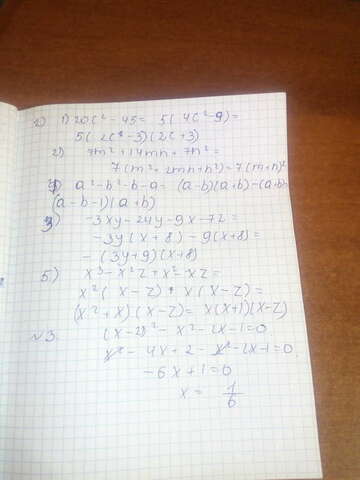 2) 1) 20c² - 45 = 5(4c² - 9) =
5(2c - 3)(2c + 3)
2) 7m² + 14mn + 7n² =
7(m² + 2mn + n²) = 7(m + n)²
3) a² - b² - b - a = (a - b)(a + b) - (a + b)
(a - b - 1)(a + b)
4) -3xy - 24y - 9x - 72 =
-3y(x + 8) - 9(x + 8) =
- (3y + 9)(x + 8)
5) x³ - x²z + x² - xz =
x²(x - z) + x(x - z) =
(x² + x)(x - z) = x(x + 1)(x - z)
№3 (x - 2)² - x² - 2x - 1 = 0
x² - 4x + 2 - x² - 2x - 1 = 0
-6x + 1 = 0
x = 1/6